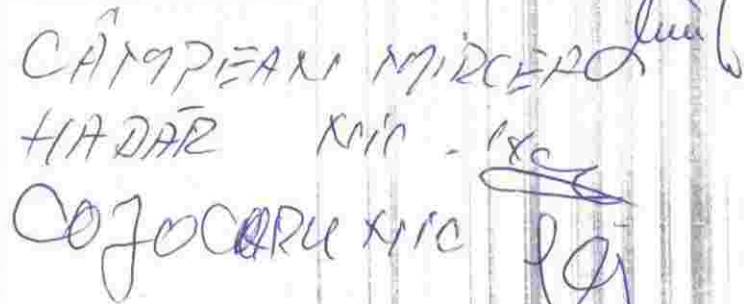 CÂMPEAN MIRCEA
HADĂR
COJOCARU NIC